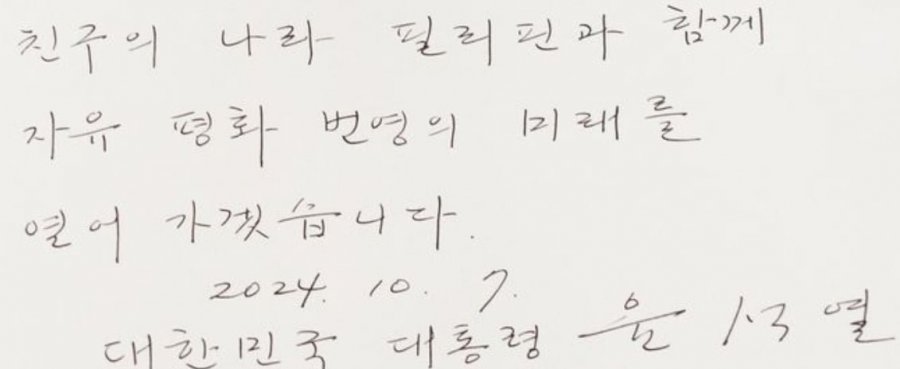 친구의 나라 필리핀과 함께
자유 평화 번영의 미래를
열어 가겠습니다.
2024. 10. 7.
대한민국 대통령 윤석열